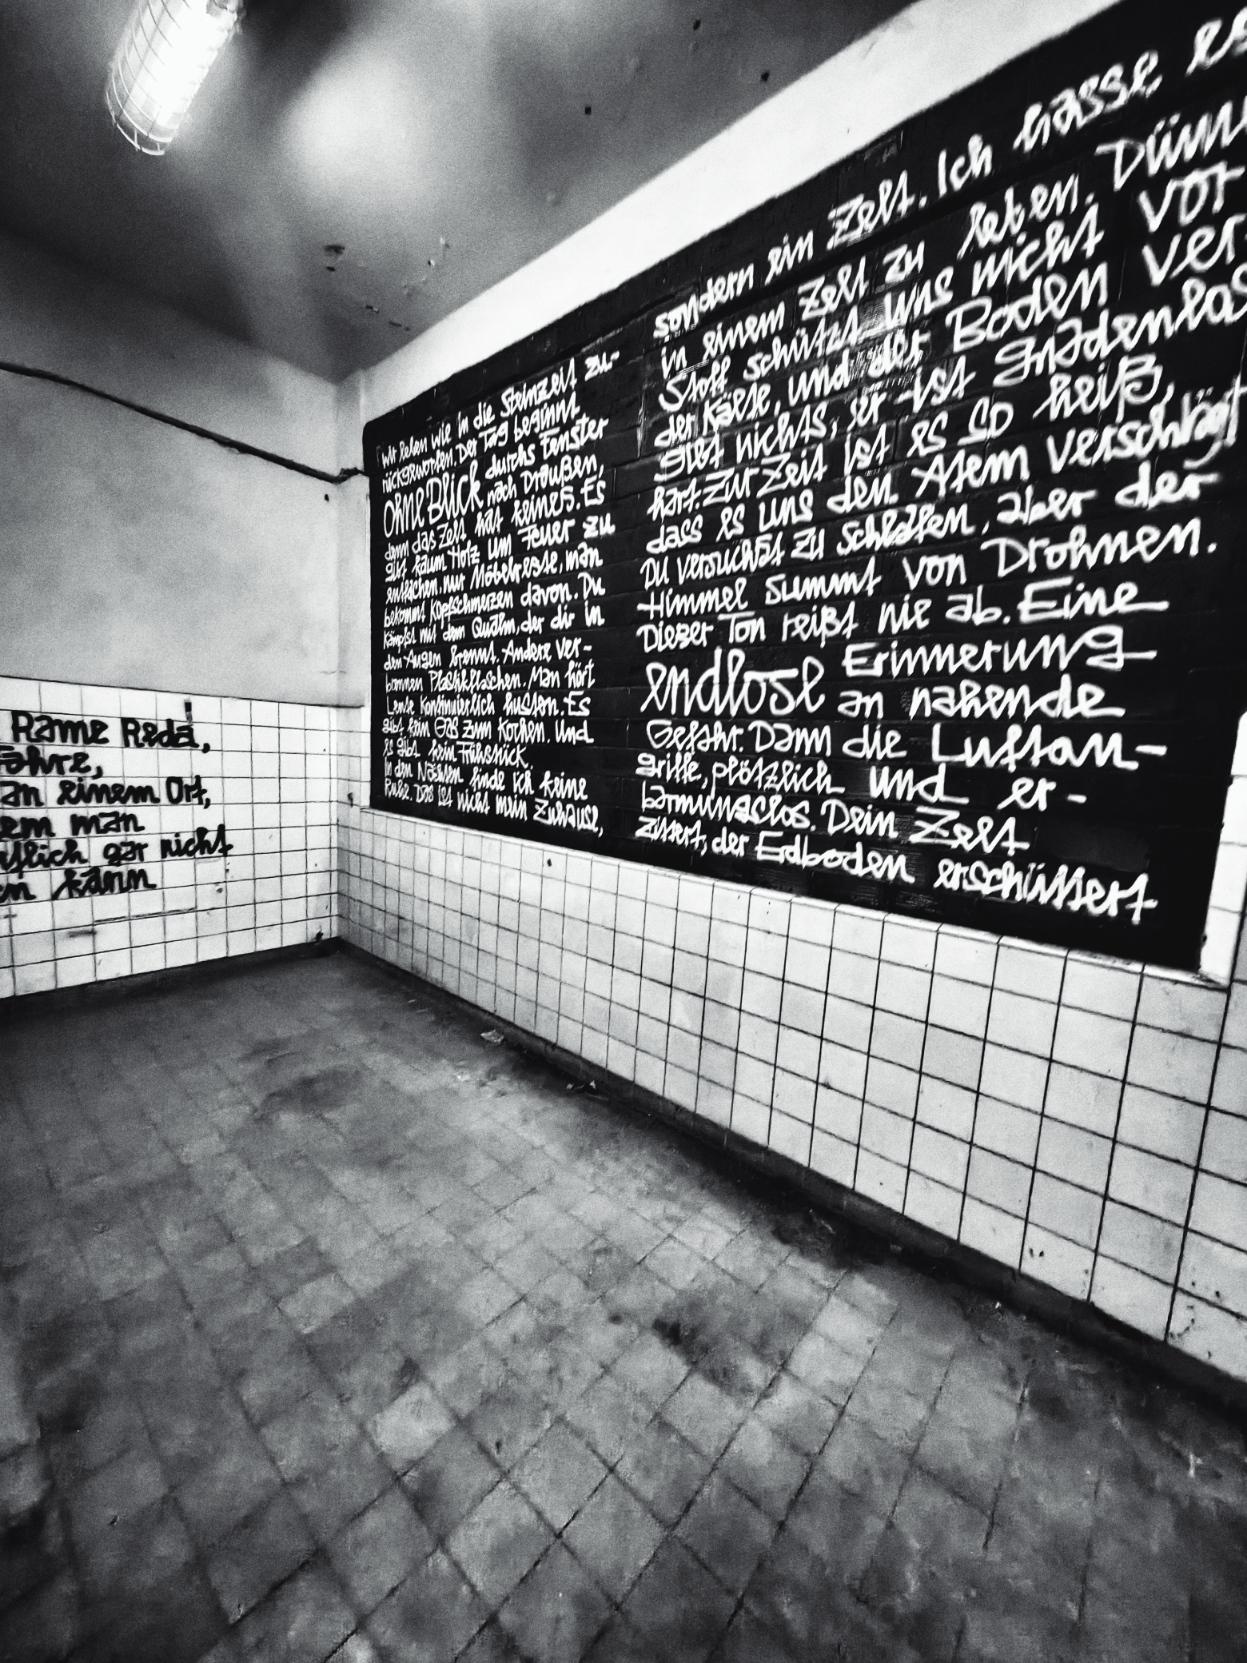 Rame Reda,
Jahre,
an einem Ort,
dem man
eigentlich gar nicht
kann
Wir leben wie in die Steinzeit zu-
rückgeworfen. Der Tag beginnt
Ohne Blick durchs Fenster
nach Draußen,
denn das Zelt hat keines. Es
gibt kaum Holz um Feuer zu
entfachen, nur Möbelreste, man
bekommt Kopfschmerzen davon. Du
kämpfst mit dem Qualm, der dir in
den Augen brennt. Andere ver-
brennen Plastikflaschen. Man hört
Leute kontinuierlich husten. Es
gibt kein Gas zum Kochen. Und
es gibt kein Frühstück.
In den Nächten finde ich keine
Ruhe. Das ist nicht mein Zuhause,
sondern ein Zelt. Ich hasse es
in einem Zelt zu leben. Dünner
Stoff schützt uns nicht vor
der Kälte, und der Boden ver-
gibt nichts, er ist gnadenlos
hart. Zur Zeit ist es so heiß,
dass es uns den Atem verschlägt
Du versuchst zu schlafen, aber der
Himmel summt von Drohnen.
Dieser Ton reißt nie ab. Eine
endlose Erinnerung
an nahende
Gefahr. Dann die Luftan-
griffe, plötzlich und er-
barmungslos. Dein Zelt
zittert, der Erdboden erschüttert